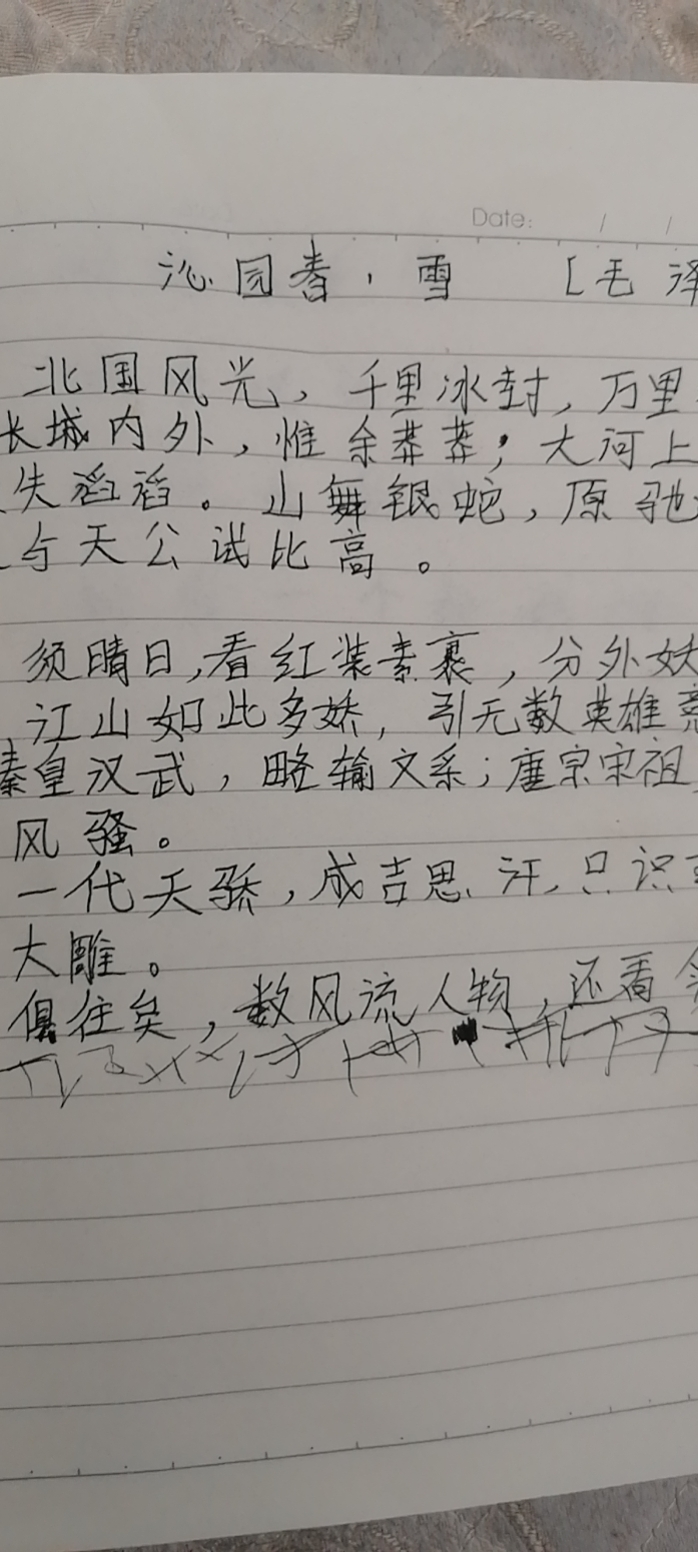 Date: / /
沁园春,雪 [毛泽
北国风光,千里冰封,万里
长城内外,惟余莽莽;大河上
失滔滔。山舞银蛇,原驰
与天公试比高。
须晴日,看红装素裹,分外妖
江山如此多娇,引无数英雄竞
秦皇汉武,略输文采;唐宗宋祖
风骚。
一代天骄,成吉思汗,只识
大雕。
俱往矣,数风流人物,还看今